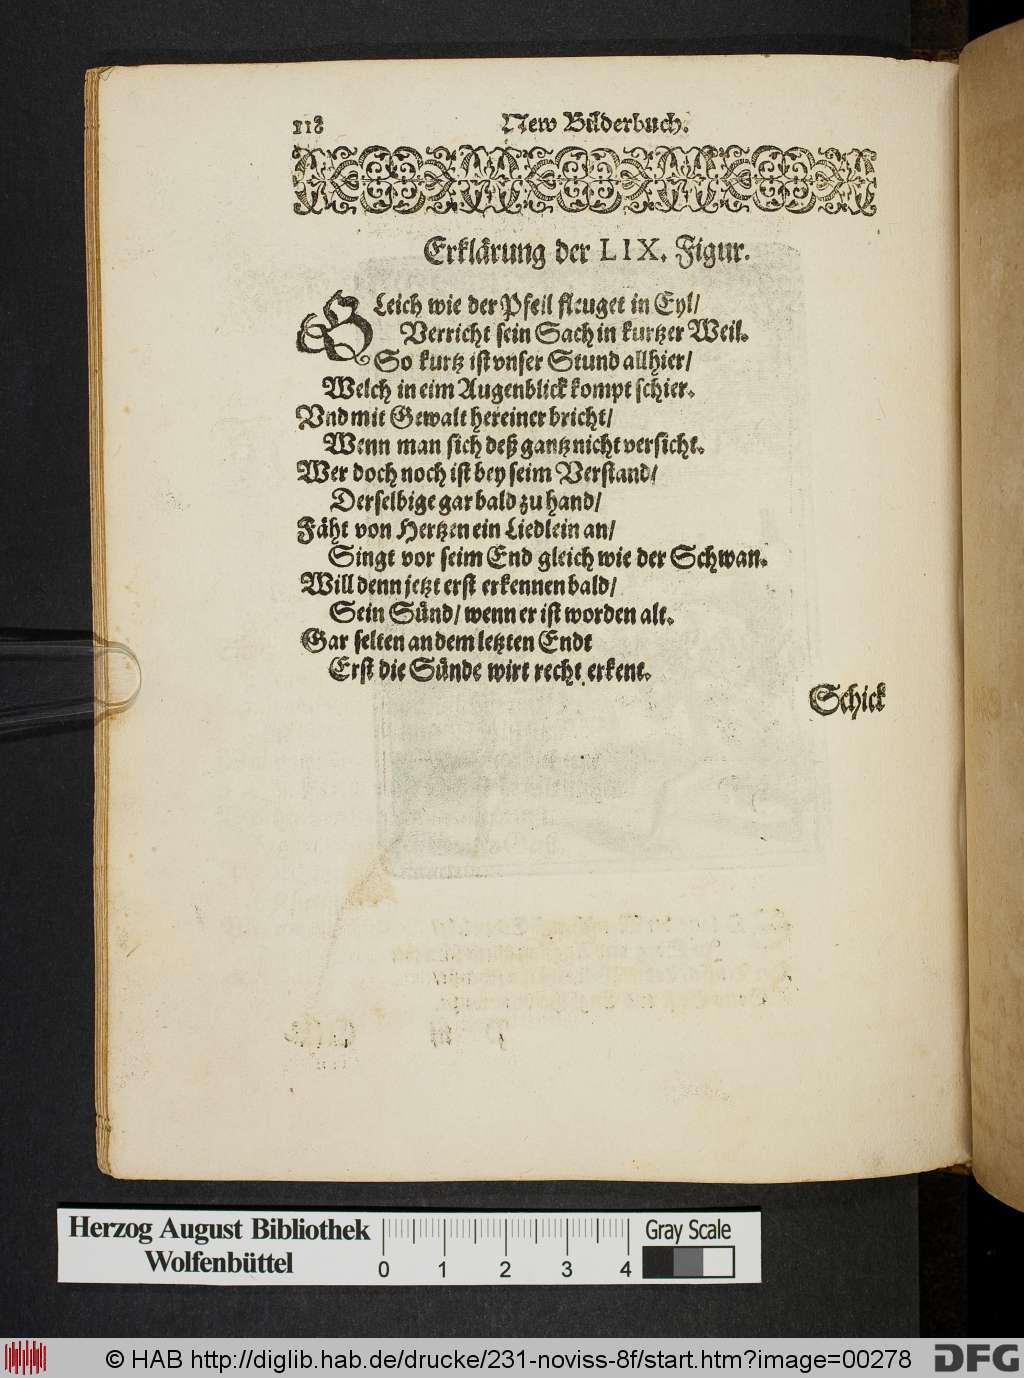 118
New Bilderbuch.
Erklärung der LIX. Figur.
GLeich wie der Pfeil fleuget in Eyl/
Verricht sein Sach in kurtzer Weil.
So kurtz ist vnser Stund allhier/
Welch in eim Augenblick kompt schier.
Vnd mit Gewalt hereiner bricht/
Wenn man sich deß gantz nicht versicht.
Wer doch noch ist bey seim Verstand/
Derselbige gar bald zu hand/
Fäht von Hertzen ein Liedlein an/
Singt vor seim End gleich wie der Schwan.
Will denn jetzt erst erkennen bald/
Sein Sünd/ wenn er ist worden alt.
Gar selten an dem letzten Endt
Erst die Sünde wirt recht erkent.
Schick
Herzog August Bibliothek
Wolfenbüttel
0 1 2 3 4
Gray Scale
© HAB http://diglib.hab.de/drucke/231-noviss-8f/start.htm?image=00278
DFG